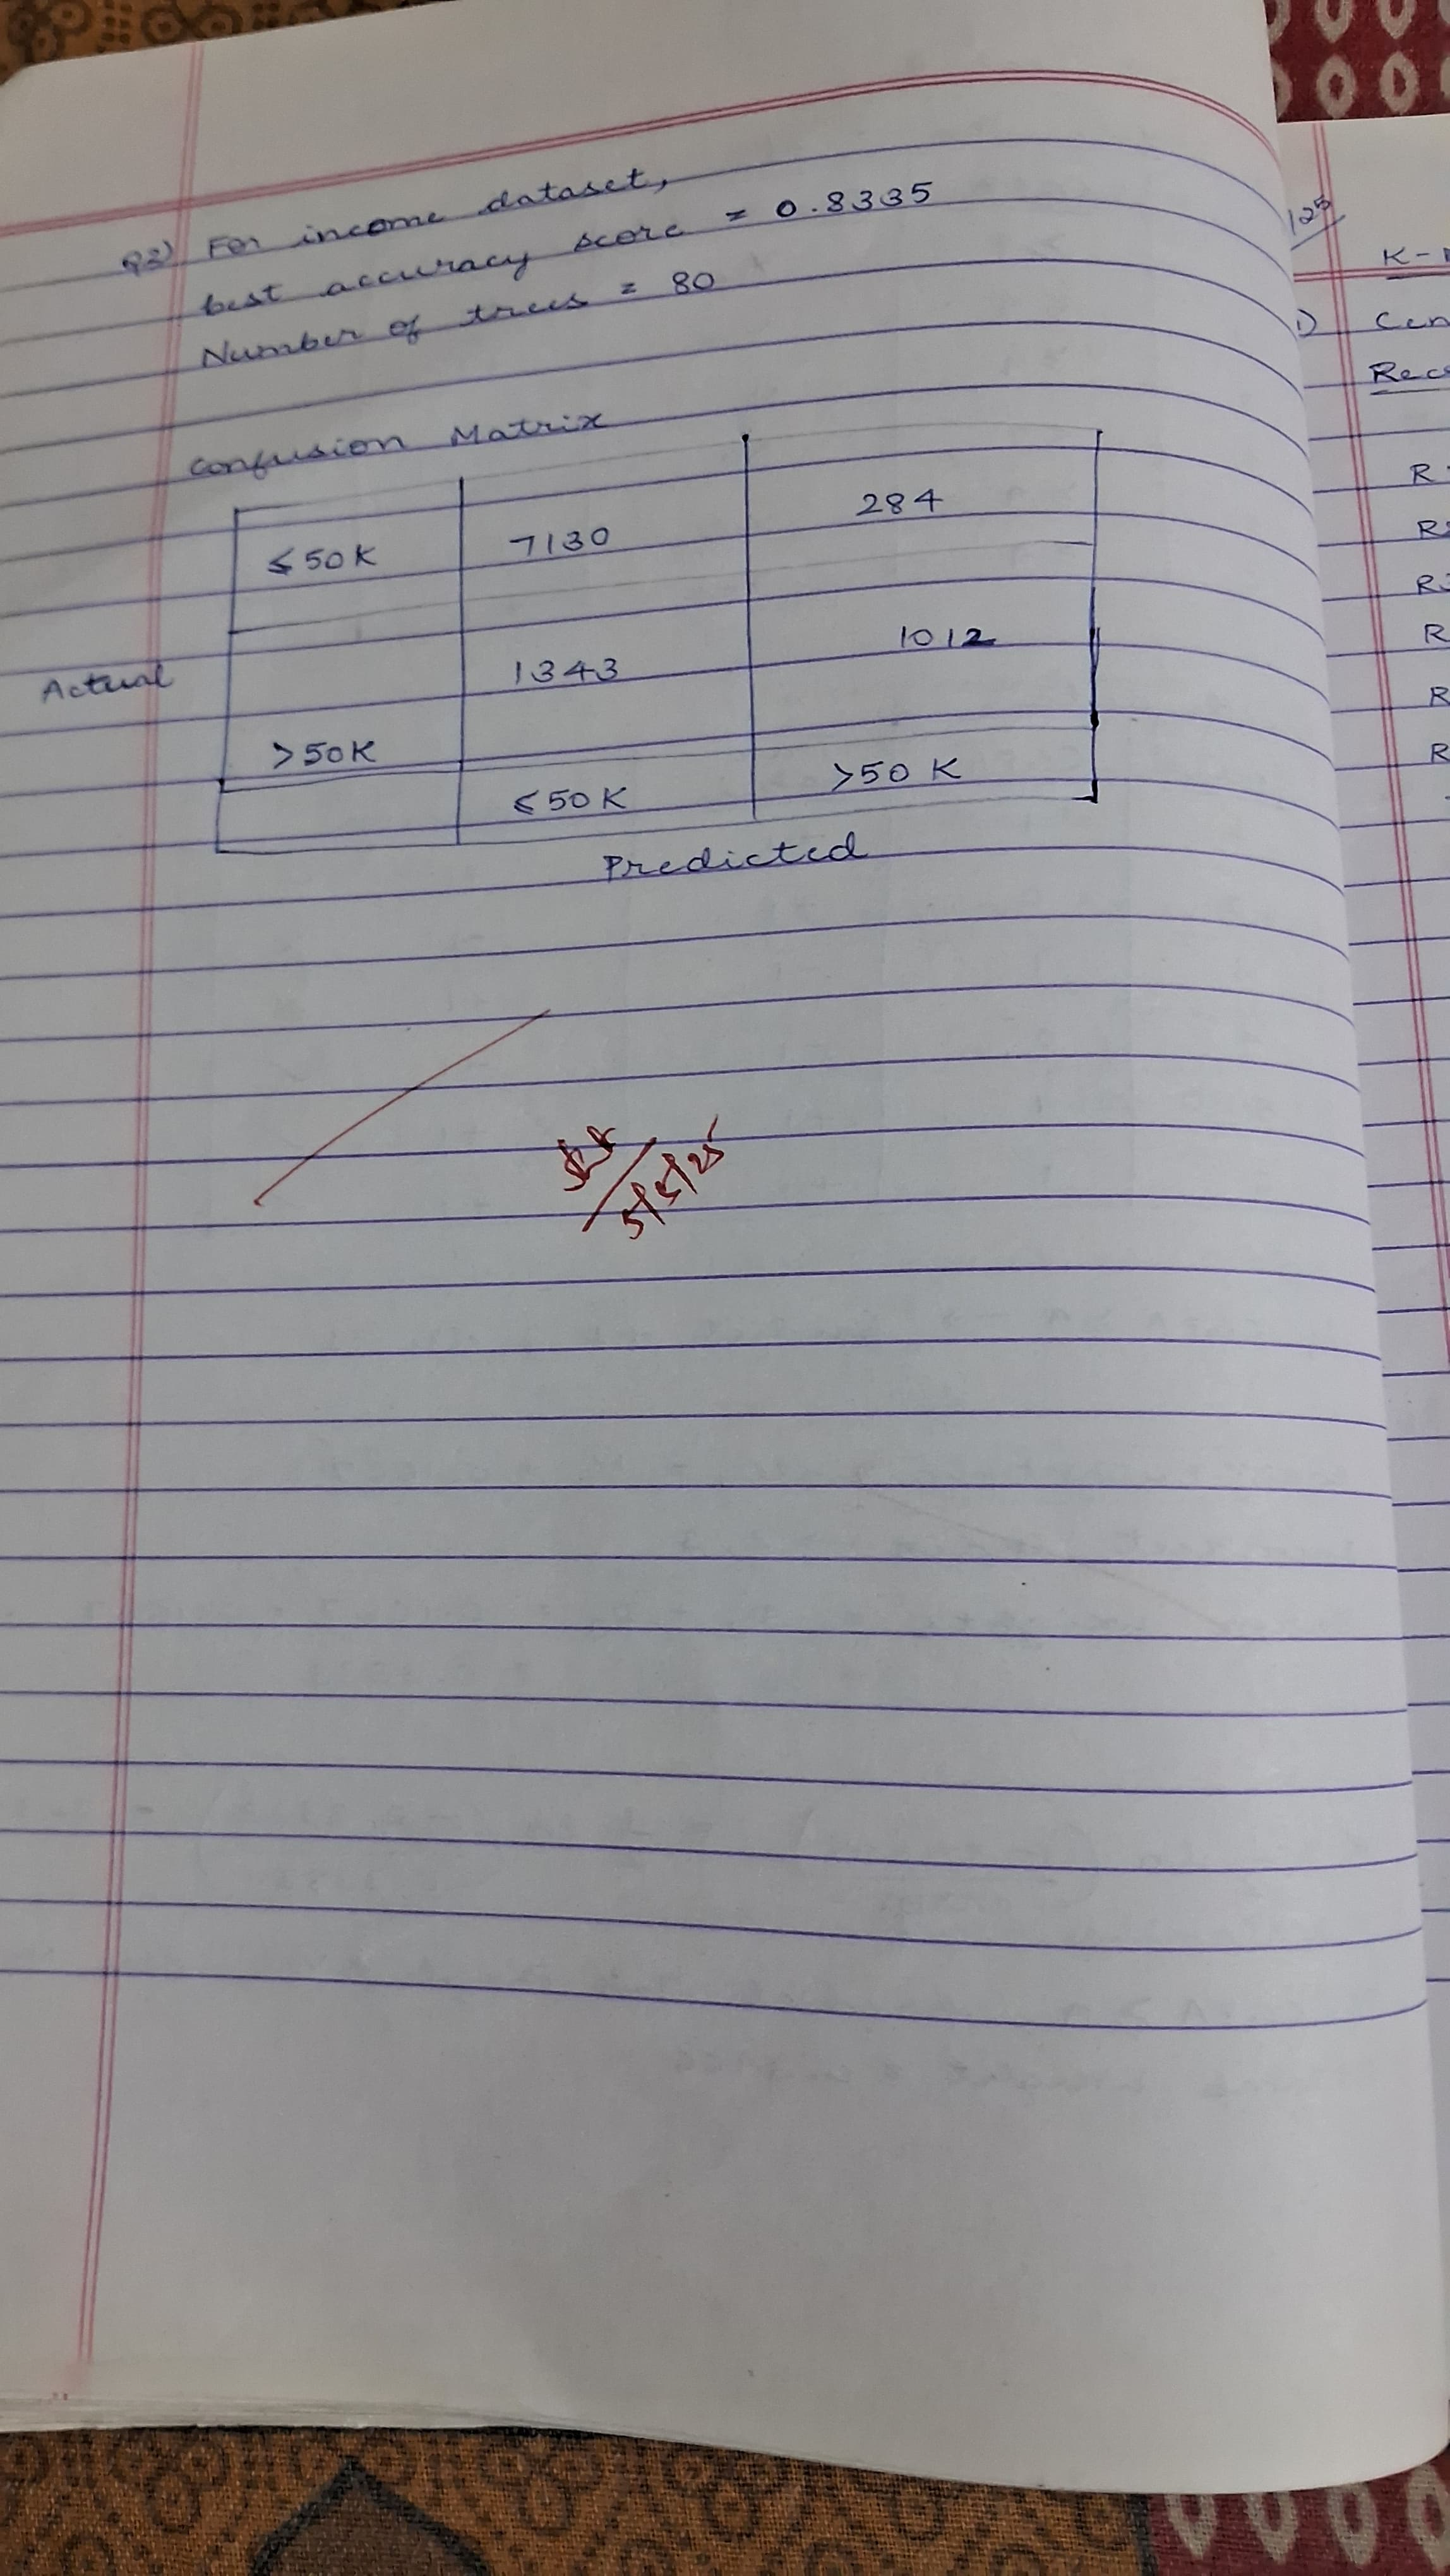 Q2) For income dataset,
best accuracy score = 0.8335
Number of trees = 80
Confusion Matrix
≤50K 7130 284
Actual
1343 1012
>50K
≤50K >50K
Predicted
5/5/25
125
K-
1) Cen
Rec
R
R2
R3
R
R
R